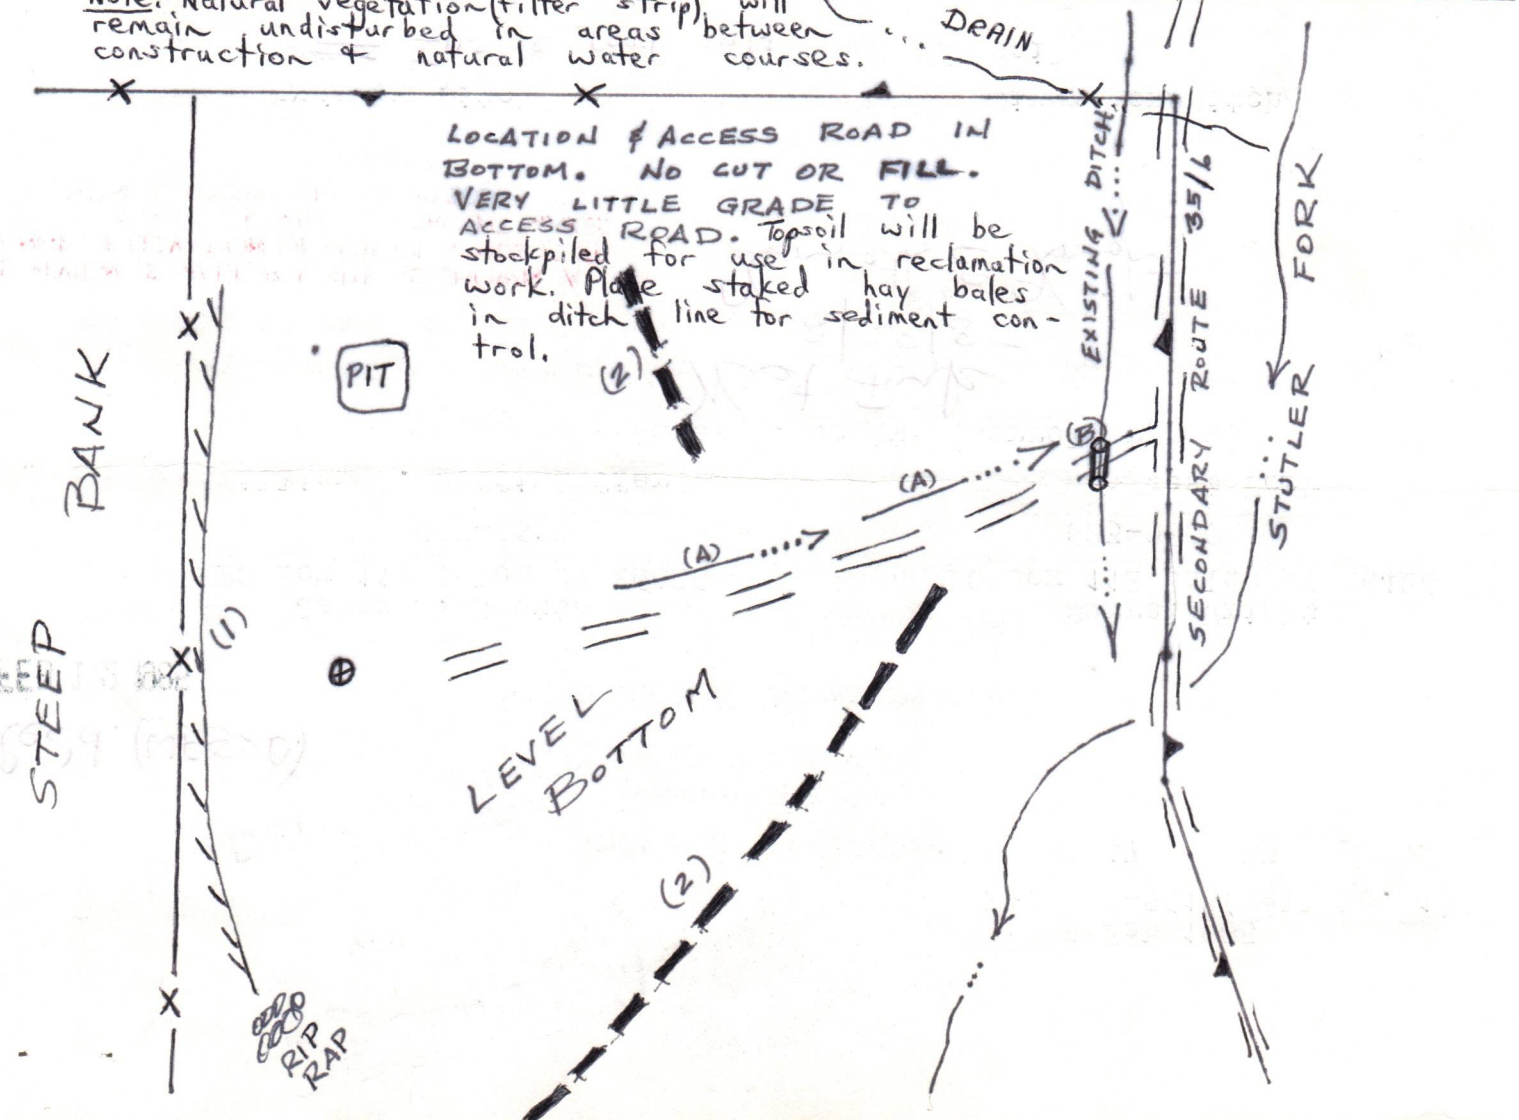 Note: Natural vegetation (filter strip) will
remain undisturbed in areas between
construction & natural water courses.
DRAIN
LOCATION & ACCESS ROAD IN
BOTTOM. NO CUT OR FILL.
VERY LITTLE GRADE TO
ACCESS ROAD. Topsoil will be
stockpiled for use in reclamation
work. Place staked hay bales
in ditch line for sediment con-
trol.
EXISTING DITCH
SECONDARY ROUTE 35/6
STUTLER FORK
STEEP BANK
PIT
(2)
(B)
(A)
(A)
(1)
LEVEL
BOTTOM
(2)
RIP
RAP